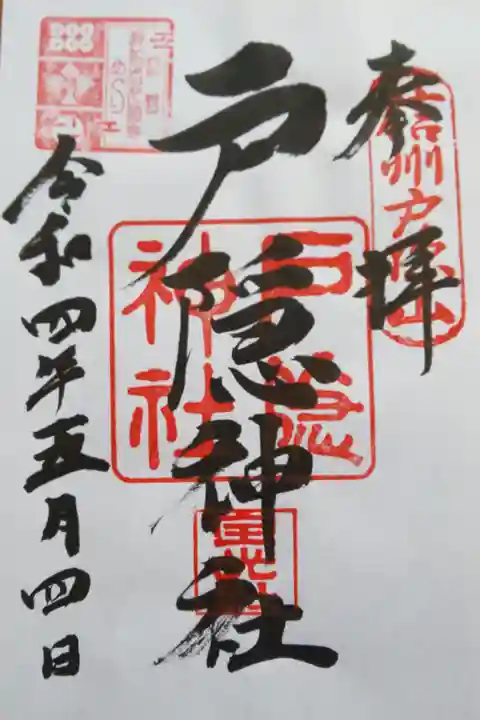 奉拝
信州戸隠山
戸隠神社
戸隠
神社
令和四年五月四日